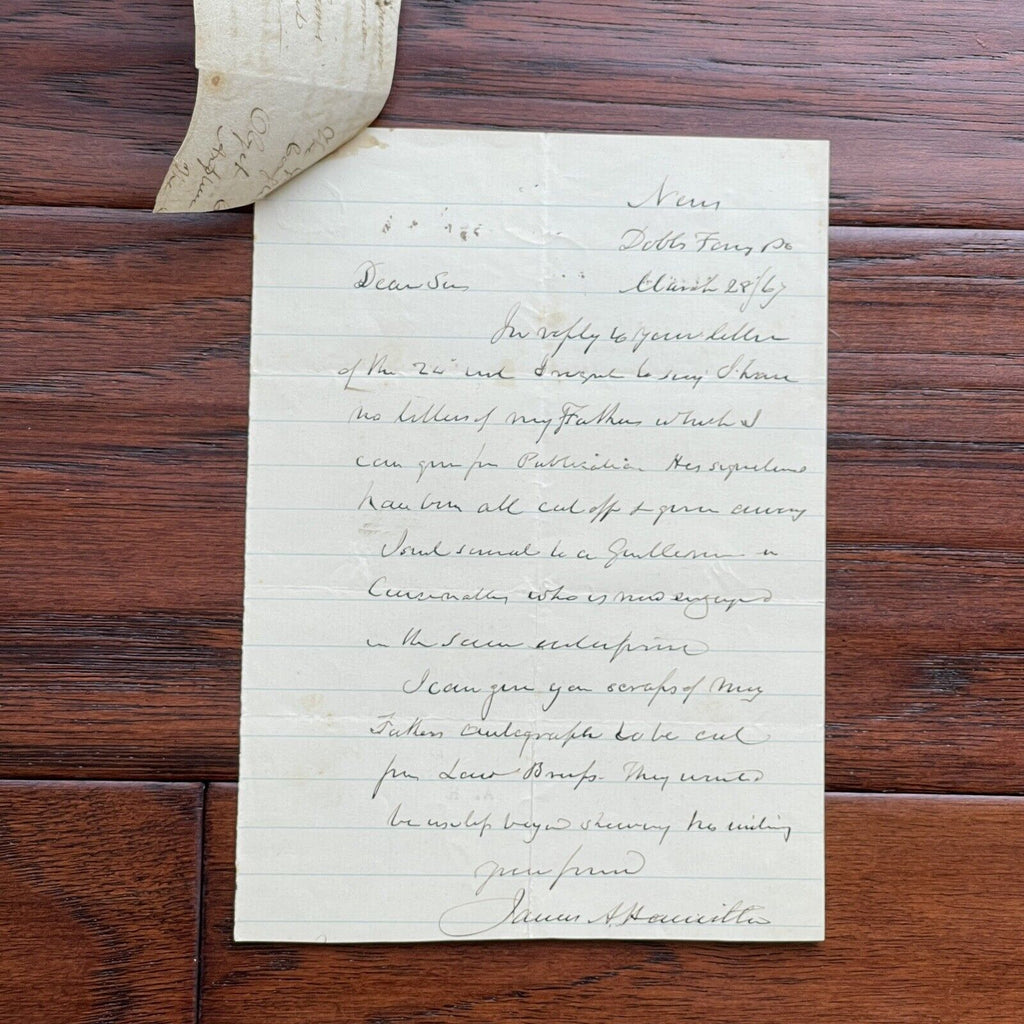 Nevis
Dobbs Ferry Po
March 28/67
Dear Sir
In reply to your letter
of the inst I regret to say I have
no letters of my Fathers which I
can give for Publication His signatures
have been all cut off & given away
I sent several to a Gentleman in
Cincinnatti who is now engaged
in the same enterprise
I can give you scraps of my
Fathers autograph to be cut
from Law Briefs. They would
be useless beyond shewing his writing
your friend
James A. Hamilton
The
Object